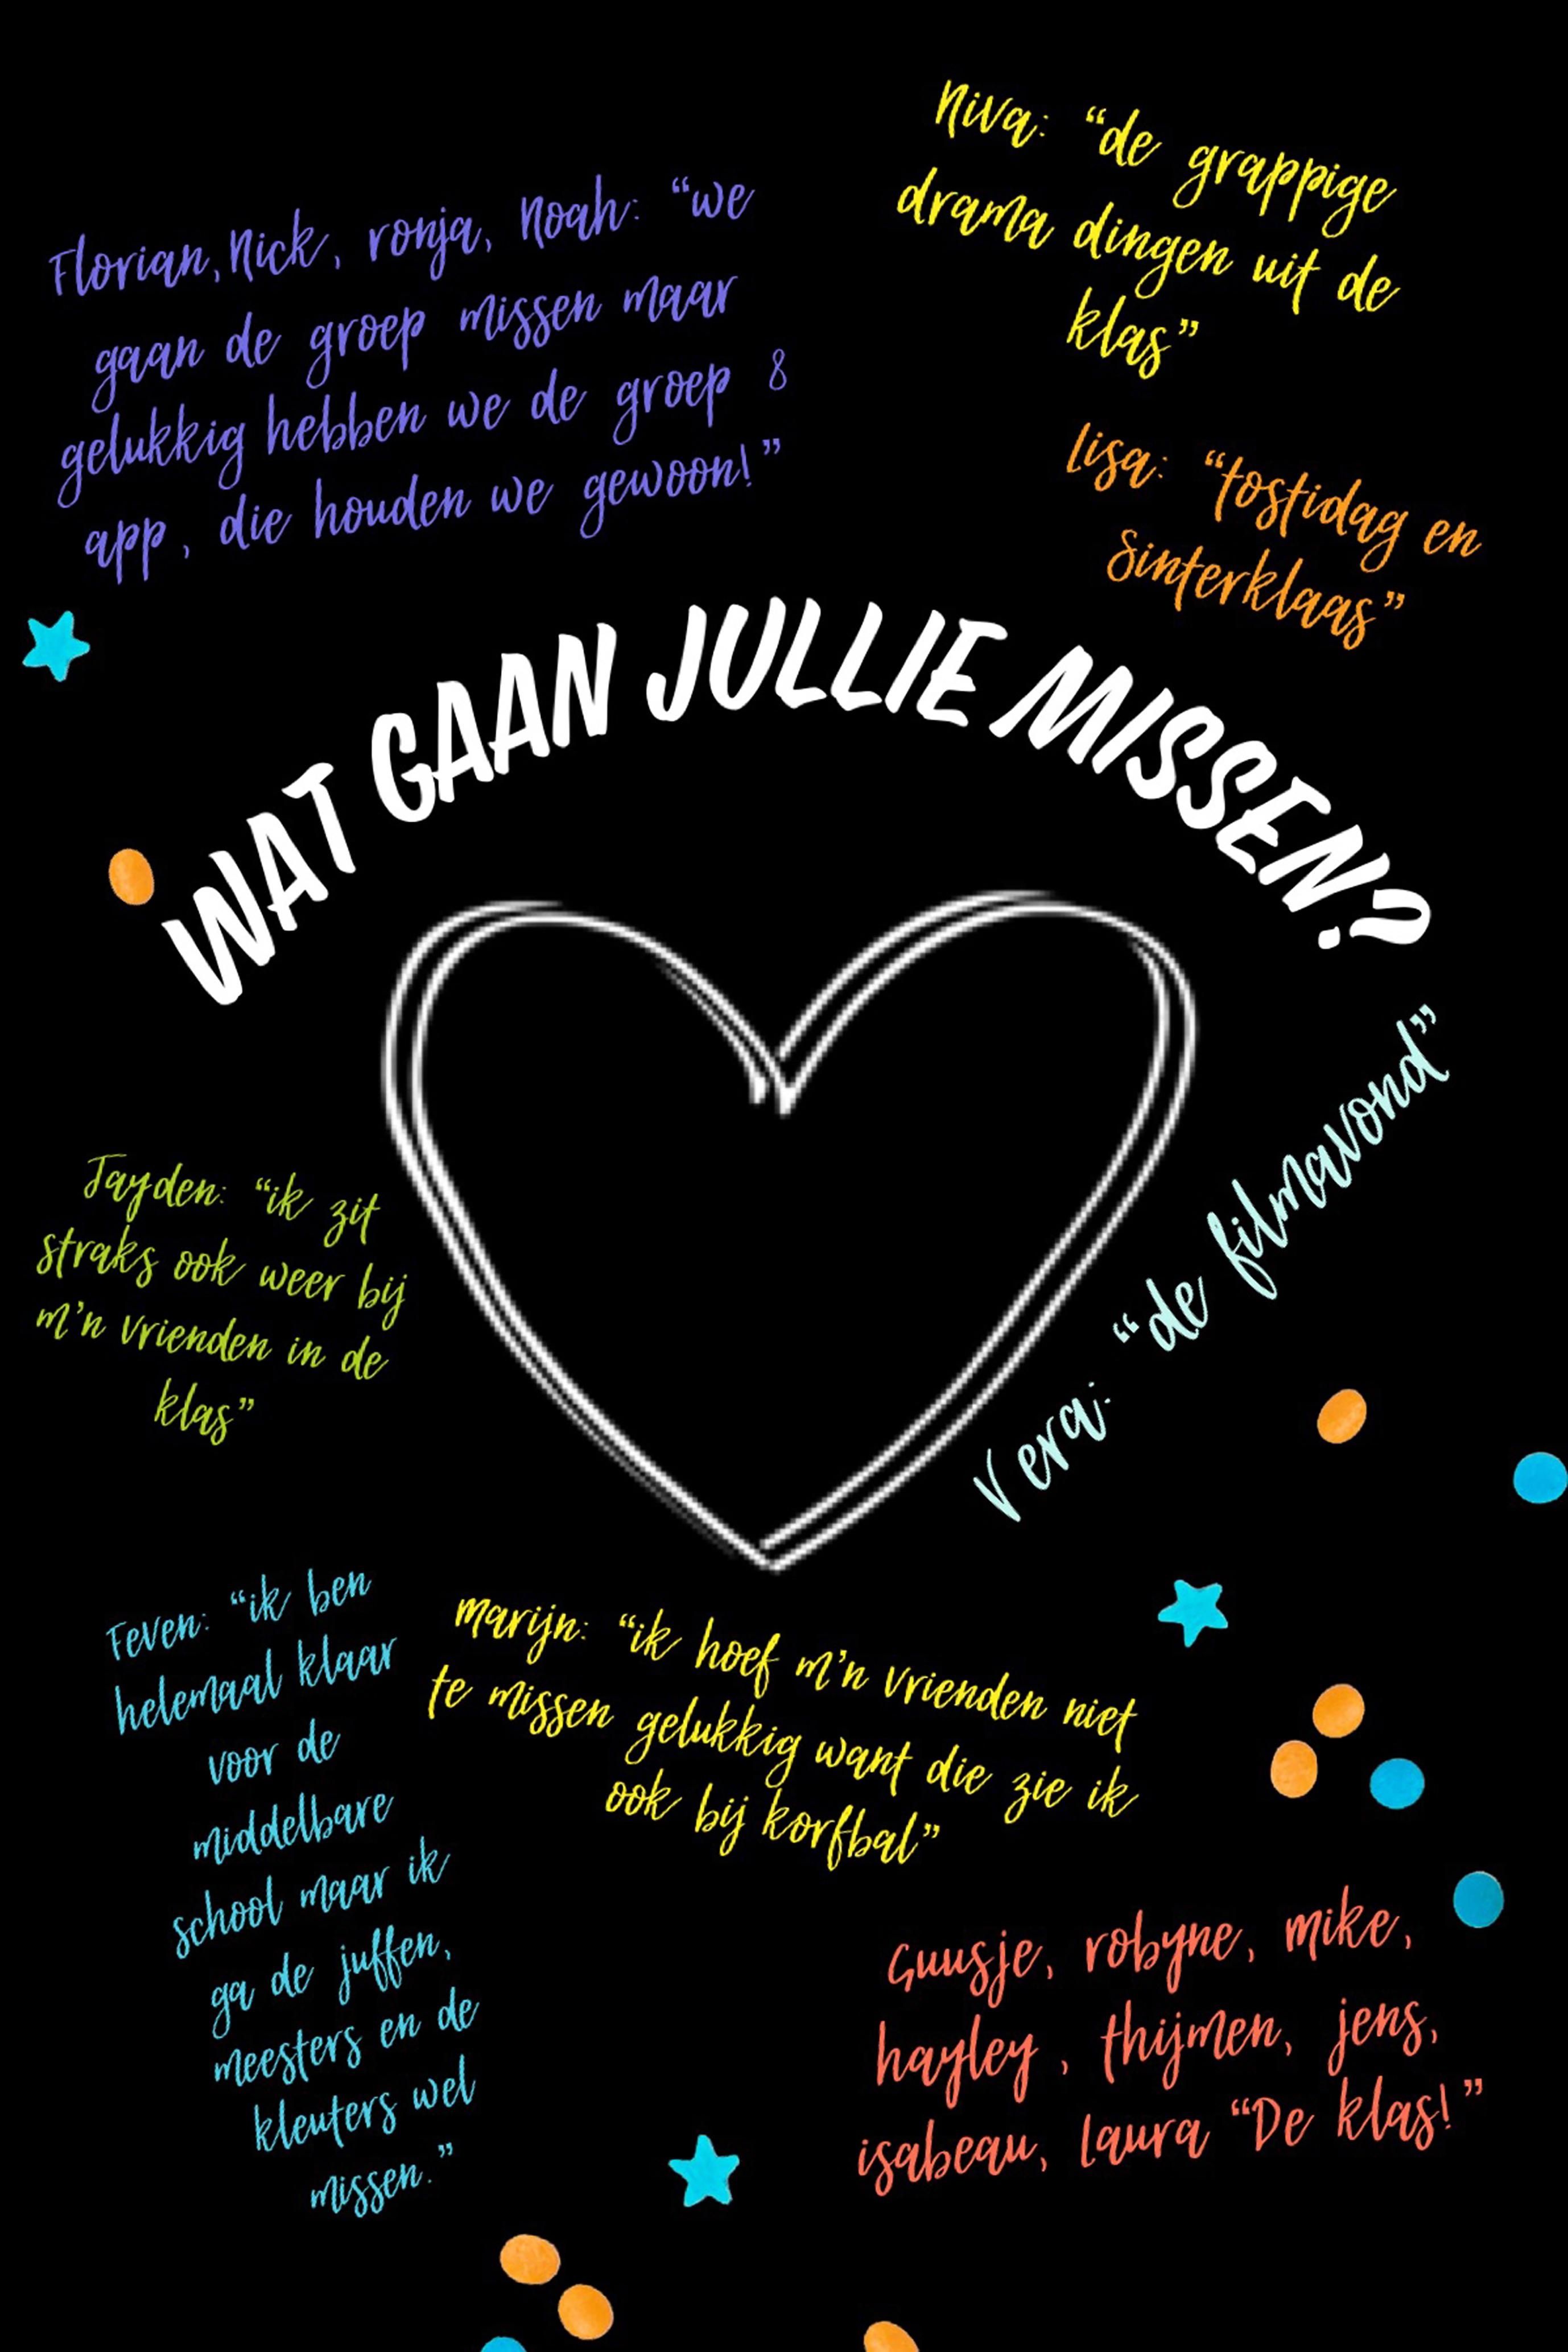 Florian, Nick, ronja, Noah: “we
gaan de groep missen maar
gelukkig hebben we de groep 8
app, die houden we gewoon!”
Niva: “de grappige
drama dingen uit de
klas”
Lisa: “tostidag en
Sinterklaas”
WAT GAAN JULLIE MISSEN?
Jayden: “ik zit
straks ook weer bij
m’n vrienden in de
klas”
Vera: “de filmavond”
Feven: “ik ben
helemaal klaar
voor de
middelbare
school maar ik
ga de juffen,
meesters en de
kleuters wel
missen.”
Marijn: “ik hoef m’n vrienden niet
te missen gelukkig want die zie ik
ook bij korfbal”
Guusje, robyne, mike,
hayley, thijmen, jens,
isabeau, Laura “De klas!”